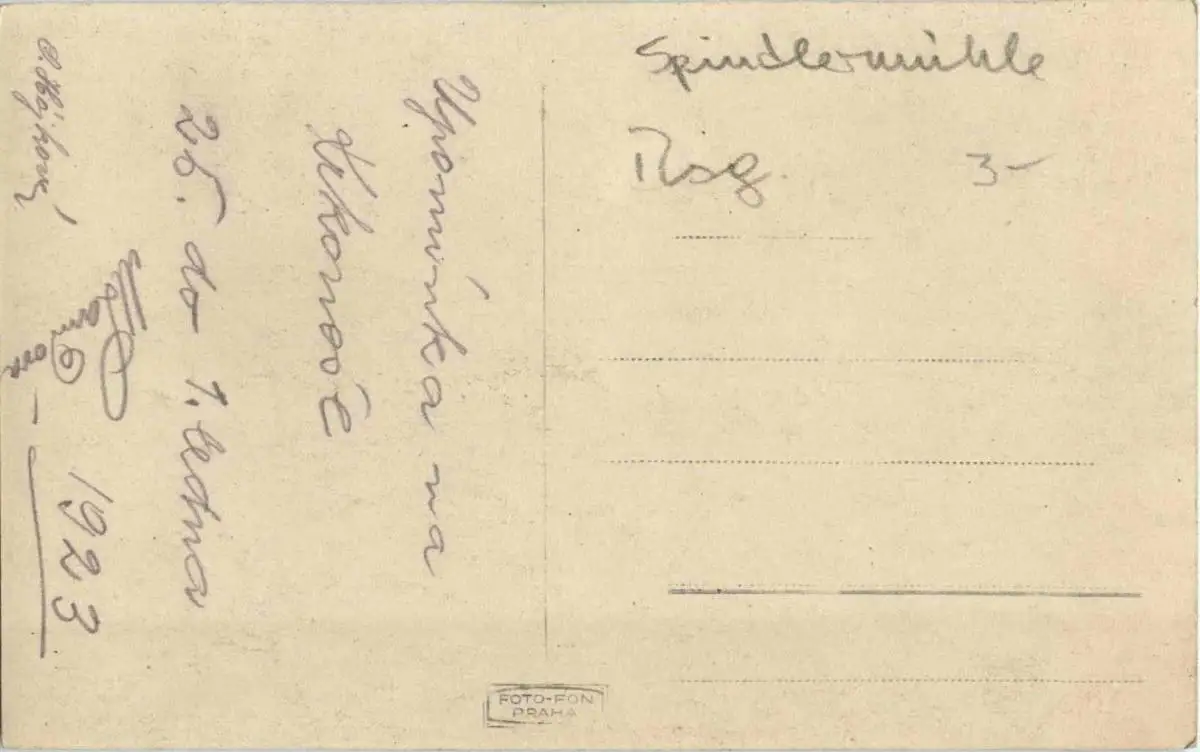 Spindlermühle
Rsg. 3-
Upomínka na
Krkonoše
26. do 1. ledna
1923
P. Hájková
FOTO-FON
PRAHA